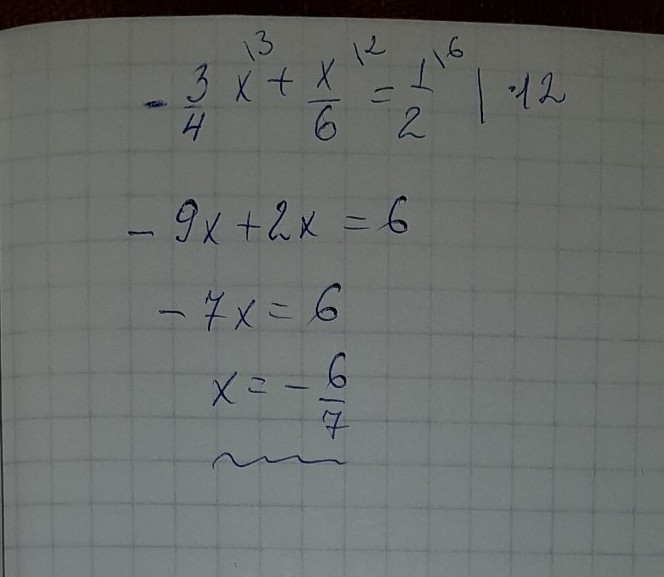 - 3/4 x\3 + x/6 \2 = 1/2 \6 | ·12
- 9x + 2x = 6
- 7x = 6
x = - 6/7